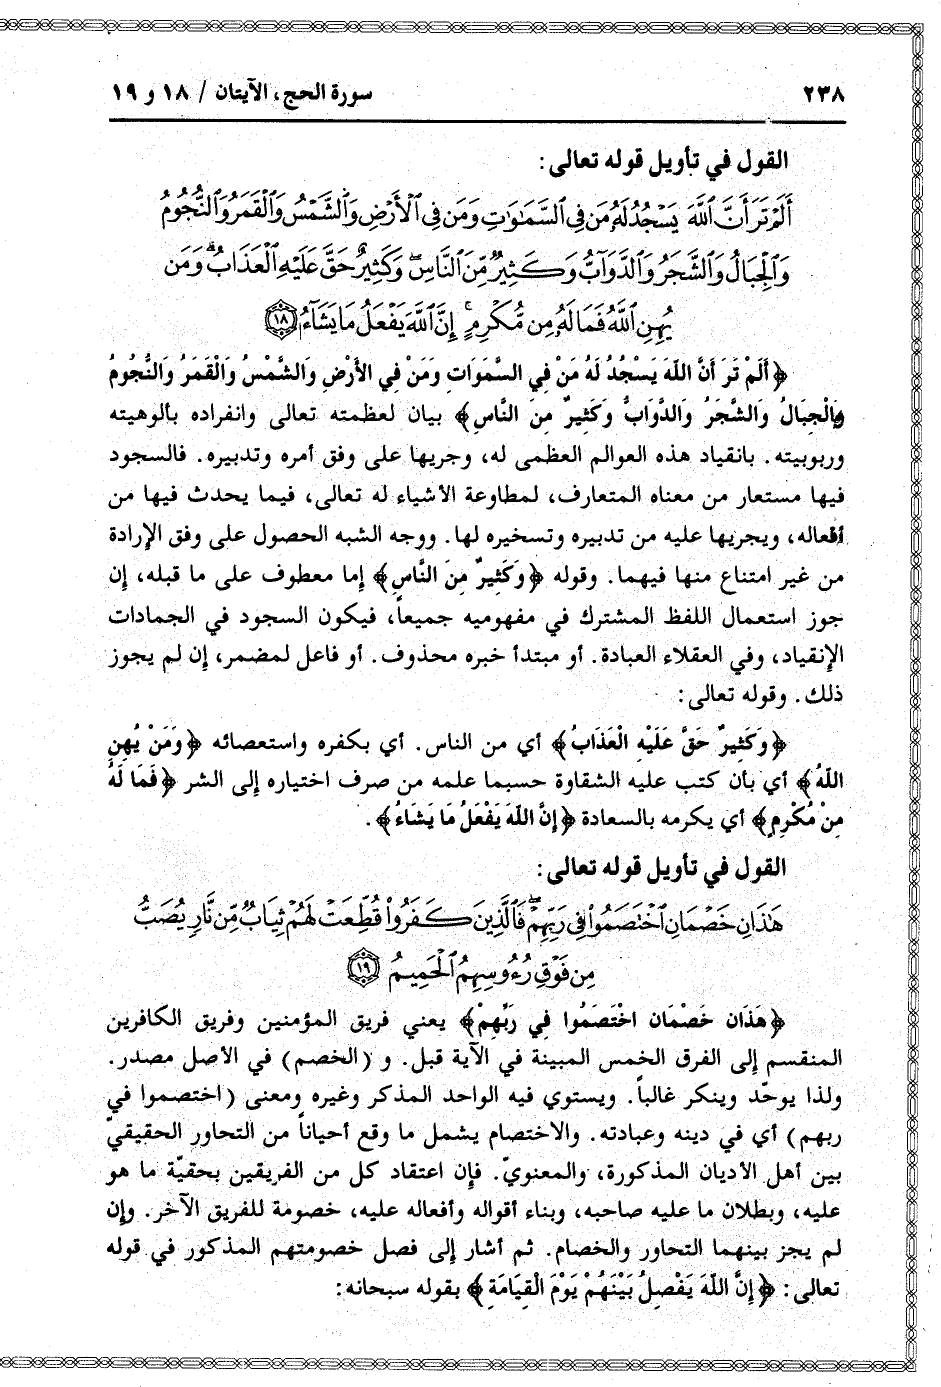 ٢٣٨
سورة الحج، الآيتان / ١٨ و ١٩
القول في تأويل قوله تعالى:
أَلَمْ تَرَ أَنَّ ٱللَّهَ يَسْجُدُ لَهُۥ مَن فِى ٱلسَّمَٰوَٰتِ وَمَن فِى ٱلْأَرْضِ وَٱلشَّمْسُ وَٱلْقَمَرُ وَٱلنُّجُومُ
وَٱلْجِبَالُ وَٱلشَّجَرُ وَٱلدَّوَآبُّ وَكَثِيرٌ مِّنَ ٱلنَّاسِ ۖ وَكَثِيرٌ حَقَّ عَلَيْهِ ٱلْعَذَابُ ۗ وَمَن
يُهِنِ ٱللَّهُ فَمَا لَهُۥ مِن مُّكْرِمٍ ۚ إِنَّ ٱللَّهَ يَفْعَلُ مَا يَشَآءُ ﴿١٨﴾
﴿أَلَمْ تَرَ أَنَّ اللّهَ يَسْجُدُ لَهُ مَنْ فِي السَّمَوَاتِ وَمَنْ فِي الأَرْضِ وَالشَّمْسُ وَالْقَمَرُ وَالنُّجُومُ
وَالْجِبَالُ وَالشَّجَرُ وَالدَّوَابُّ وَكَثِيرٌ مِنَ النَّاسِ﴾ بيان لعظمته تعالى وانفراده بألوهيته
وربوبيته. بانقياد هذه العوالم العظمى له، وجريها على وفق أمره وتدبيره. فالسجود
فيها مستعار من معناه المتعارف، لمطاوعة الأشياء له تعالى، فيما يحدث فيها من
أفعاله، ويجريها عليه من تدبيره وتسخيره لها. ووجه الشبه الحصول على وفق الإرادة
من غير امتناع منها فيهما. وقوله ﴿وَكَثِيرٌ مِنَ النَّاسِ﴾ إما معطوف على ما قبله، إن
جوز استعمال اللفظ المشترك في مفهوميه جميعاً، فيكون السجود في الجمادات
الإنقياد، وفي العقلاء العبادة. أو مبتدأ خبره محذوف. أو فاعل لمضمر، إن لم يجوز
ذلك. وقوله تعالى:
﴿وَكَثِيرٌ حَقَّ عَلَيْهِ الْعَذَابُ﴾ أي من الناس. أي بكفره واستعصائه ﴿وَمَنْ يُهِنِ
اللّهُ﴾ أي بأن كتب عليه الشقاوة حسبما علمه من صرف اختياره إلى الشر ﴿فَمَا لَهُ
مِنْ مُكْرِمٍ﴾ أي يكرمه بالسعادة ﴿إِنَّ اللّهَ يَفْعَلُ مَا يَشَاءُ﴾.
القول في تأويل قوله تعالى:
هَٰذَانِ خَصْمَانِ ٱخْتَصَمُوا۟ فِى رَبِّهِمْ ۖ فَٱلَّذِينَ كَفَرُوا۟ قُطِّعَتْ لَهُمْ ثِيَابٌ مِّن نَّارٍ يُصَبُّ
مِن فَوْقِ رُءُوسِهِمُ ٱلْحَمِيمُ ﴿١٩﴾
﴿هَذَانِ خَصْمَانِ اخْتَصَمُوا فِي رَبِّهِمْ﴾ يعني فريق المؤمنين وفريق الكافرين
المنقسم إلى الفرق الخمس المبينة في الآية قبل. و (الخصم) في الأصل مصدر.
ولذا يوحّد وينكر غالباً. ويستوي فيه الواحد المذكر وغيره ومعنى (اختصموا في
ربهم) أي في دينه وعبادته. والاختصام يشمل ما وقع أحياناً من التحاور الحقيقيّ
بين أهل الأديان المذكورة، والمعنويّ. فإن اعتقاد كل من الفريقين بحقيّة ما هو
عليه، وبطلان ما عليه صاحبه، وبناء أقواله وأفعاله عليه، خصومة للفريق الآخر. وإن
لم يجز بينهما التحاور والخصام. ثم أشار إلى فصل خصومتهم المذكور في قوله
تعالى: ﴿إِنَّ اللّهَ يَفْصِلُ بَيْنَهُمْ يَوْمَ الْقِيَامَةِ﴾ بقوله سبحانه: